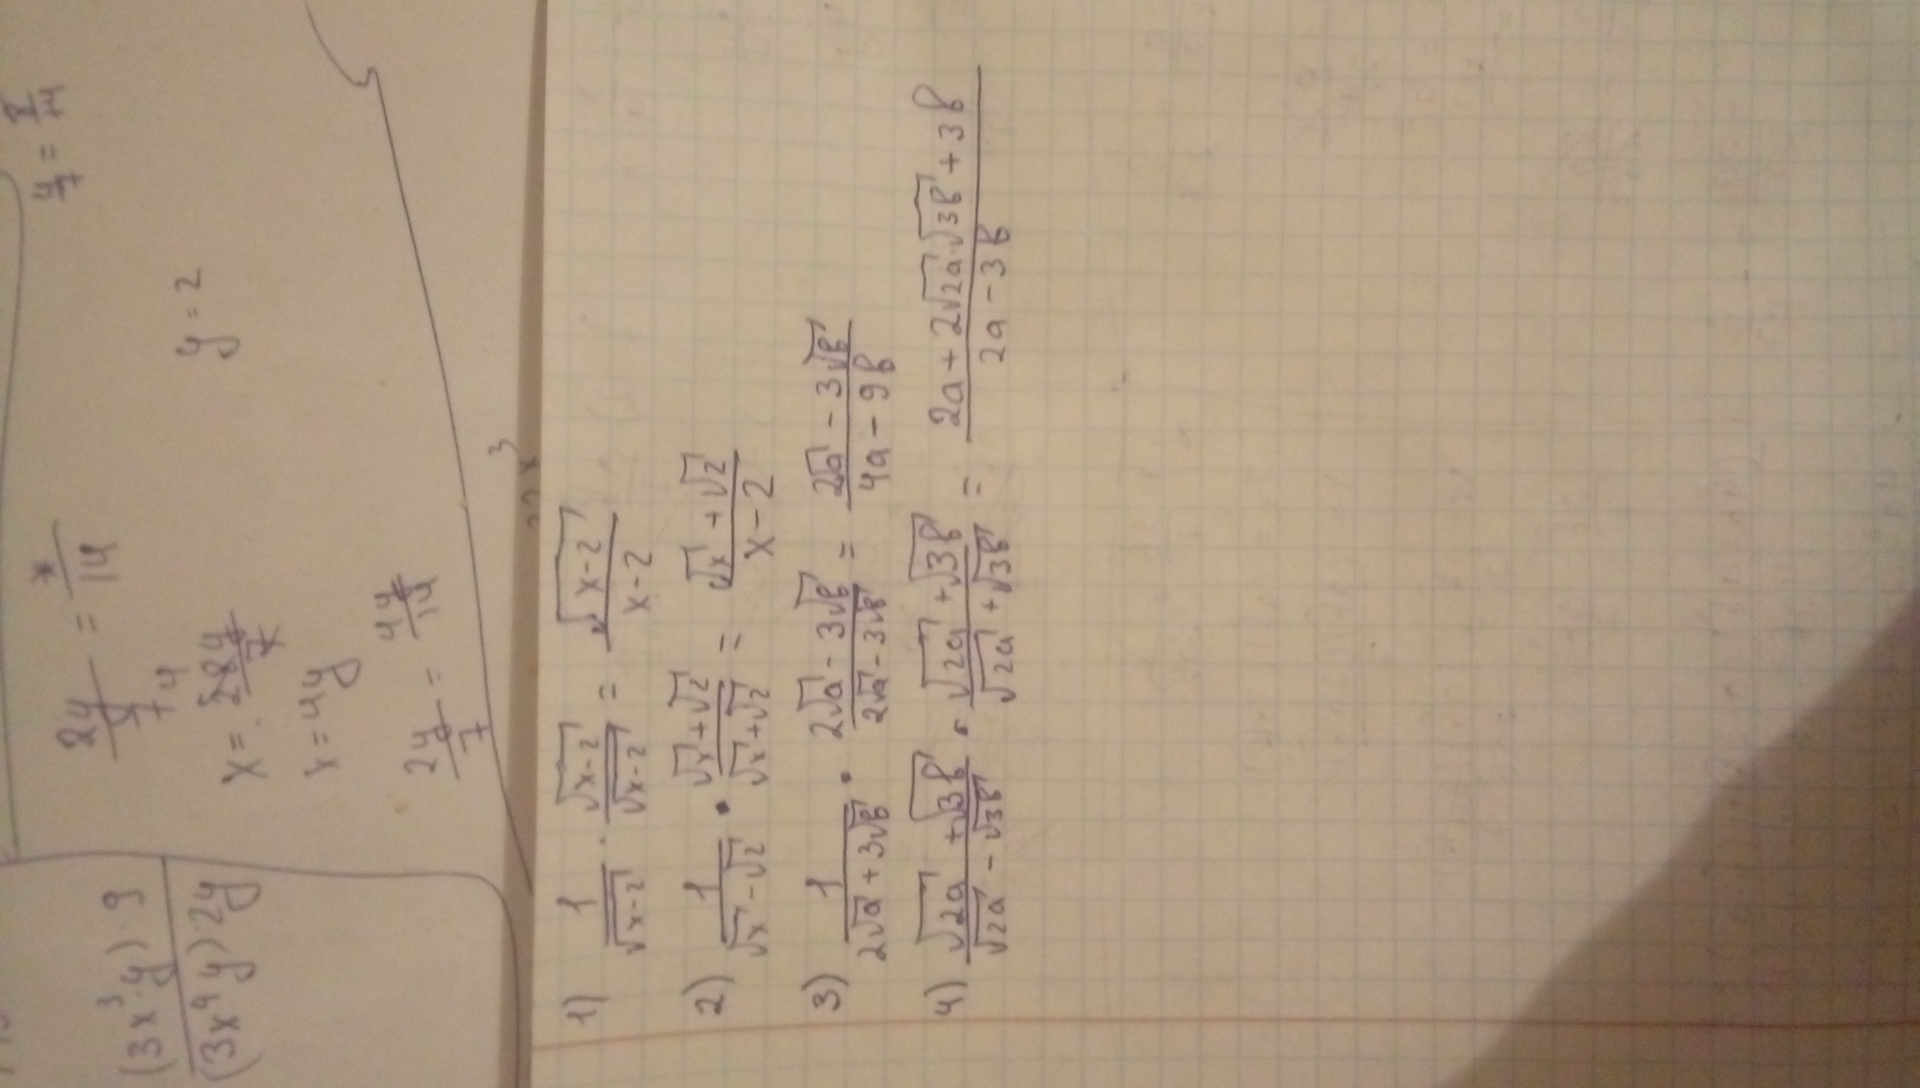 (3x³·y)·9
(3x⁴y)·2y
2y/7 = x/14
x = 28y/7
x = 4y
2y/7 = 4y/14
y = 2
4/7 = 8/14
1) 1/√(x-2) · √(x-2)/√(x-2) = √(x-2)/(x-2)
2) 1/(√x - √2) · (√x + √2)/(√x + √2) = (√x + √2)/(x-2)
3) 1/(2√a + 3√b) · (2√a - 3√b)/(2√a - 3√b) = (2√a - 3√b)/(4a - 9b)
4) (√2a + √3b)/(√2a - √3b) · (√2a + √3b)/(√2a + √3b) = (2a + 2√2a·√3b + 3b)/(2a - 3b)